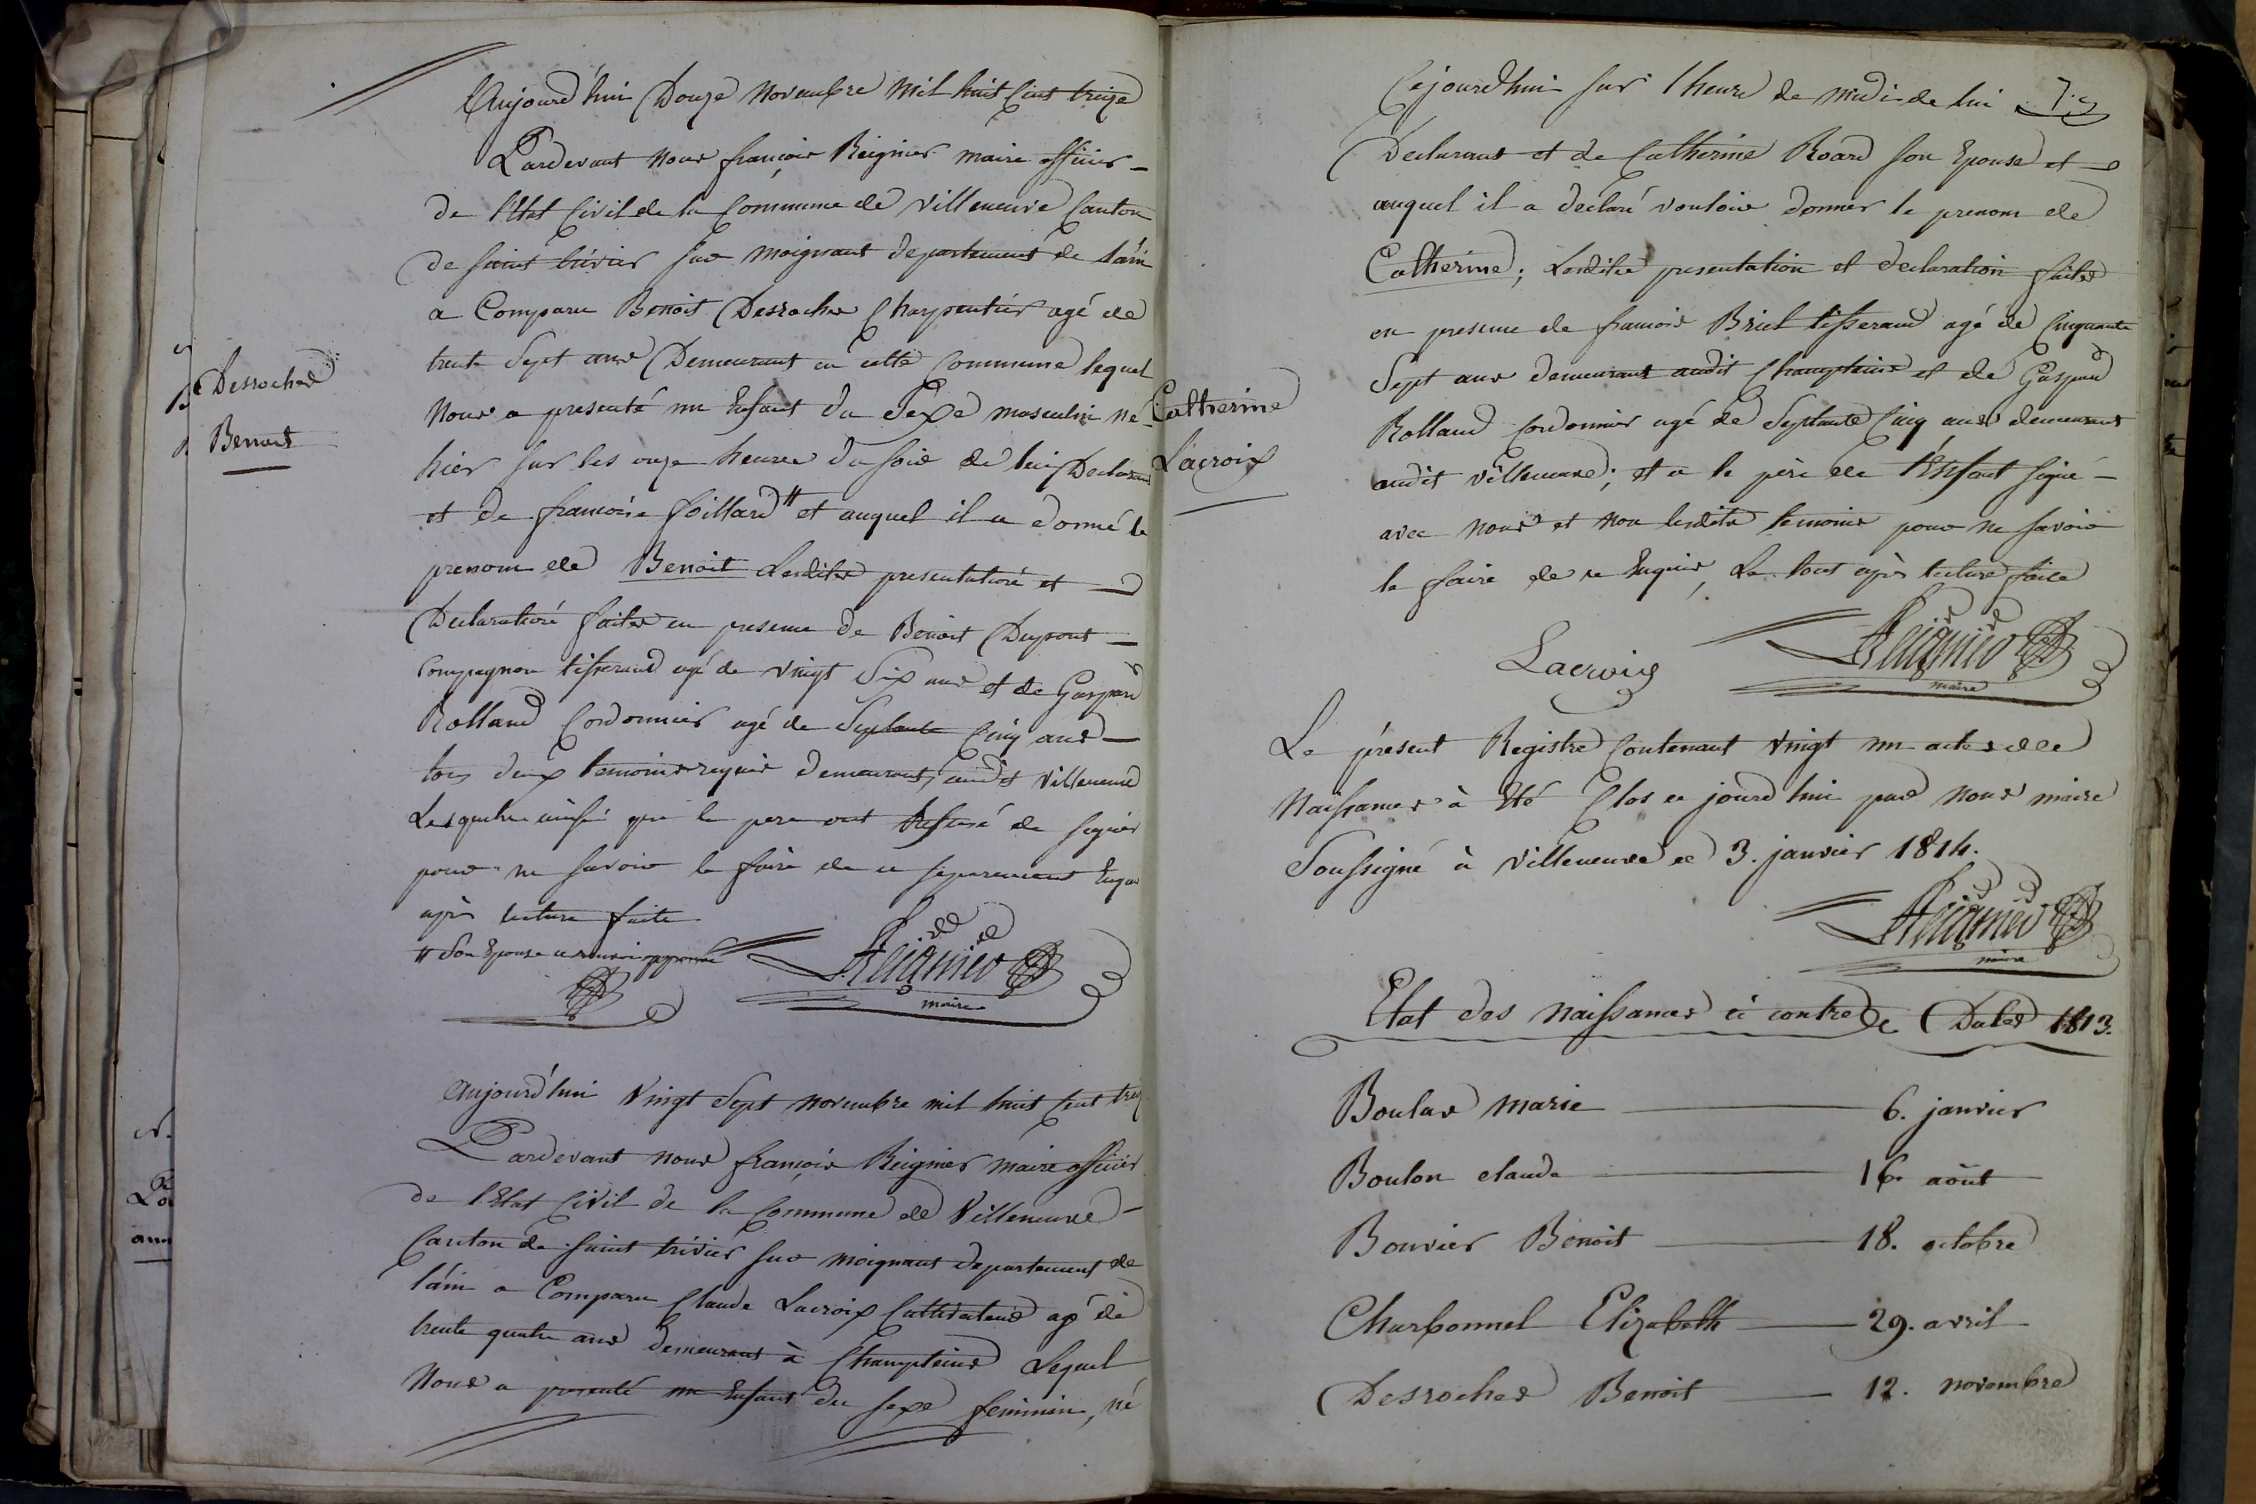 Aujourd'hui Douze Novembre mil huit Cent treize
Pardevant nous françois Reignier maire officier
de l'Etat Civil de la Commune de Villeneuve Canton
de saint trivier sur moignant departement de lain
a Comparu Benoit Desroches Charpentier agé de
trente Sept ans Demeurant en cette Commune lequel
Nous a presenté un Enfant du Sexe masculin né
hier sur les onze heures du soir de lui Declarant
et de francoise foillard # et auquel il a donné le
prenom de Benoit Lesdites presentation et
Declaration faites en presence de Benoit Dupont
Compagnon tisserand agé de vingt Six ans et de Gaspard
Rolland Cordonnier agé de Septante Cinq ans
tous deux temoins requis demeurant audit Villeneuve
Lesquels ainsi que le pere ont de signer
pour ne savoir le faire de ce separement Enquis
après lecture faite
# Son Epouse ce renvoi approuvé
Reignier
maire
Desroches
Benoit
Aujourd'hui Vingt Sept novembre mil huit Cent treize
Pardevant nous françois Reignier maire officier
de l'Etat Civil de la Commune de Villeneuve
Canton de saint trivier sur moignant departement de
lain a Comparu Claude Lacroix Cultivateur agé de
trente quatre ans demeurant à Champteins Lequel
Nous a presenté un Enfant du sexe feminin, né
Catherine
Lacroix
Cejourdhui sur l heure de midi de lui
Declarant et de Catherine Roard son Epouse et
auquel il a declaré vouloir donner le prenom de
Catherine; Lesdites presentation et declaration faites
en presence de francois Briel tisserand agé de Cinquante
Sept ans demeurant audit Champteins et de Gaspard
Rolland Cordonnier agé de Septante Cinq ans demeurant
audit Villeneuve; et a le père de l'Enfant signé
avec nous et non lesdits temoins pour ne savoir
le faire de ce Enquis, Le tout après lecture faite
Lacroix
Reignier
maire
Le présent Registre Contenant Vingt un actes de
Naissances à Eté Clos ce jourd'hui par Nous maire
Soussigné à Villeneuve ce 3. janvier 1814.
Reignier
maire
Etat des Naissances ci contre de Dates 1813.
Boulas marie 6. janvier
Boulon claude 16. août
Bouvier Benoit 18. octobre
Charbonnel Elizabeth 29. avril
Desroches Benoit 12. novembre